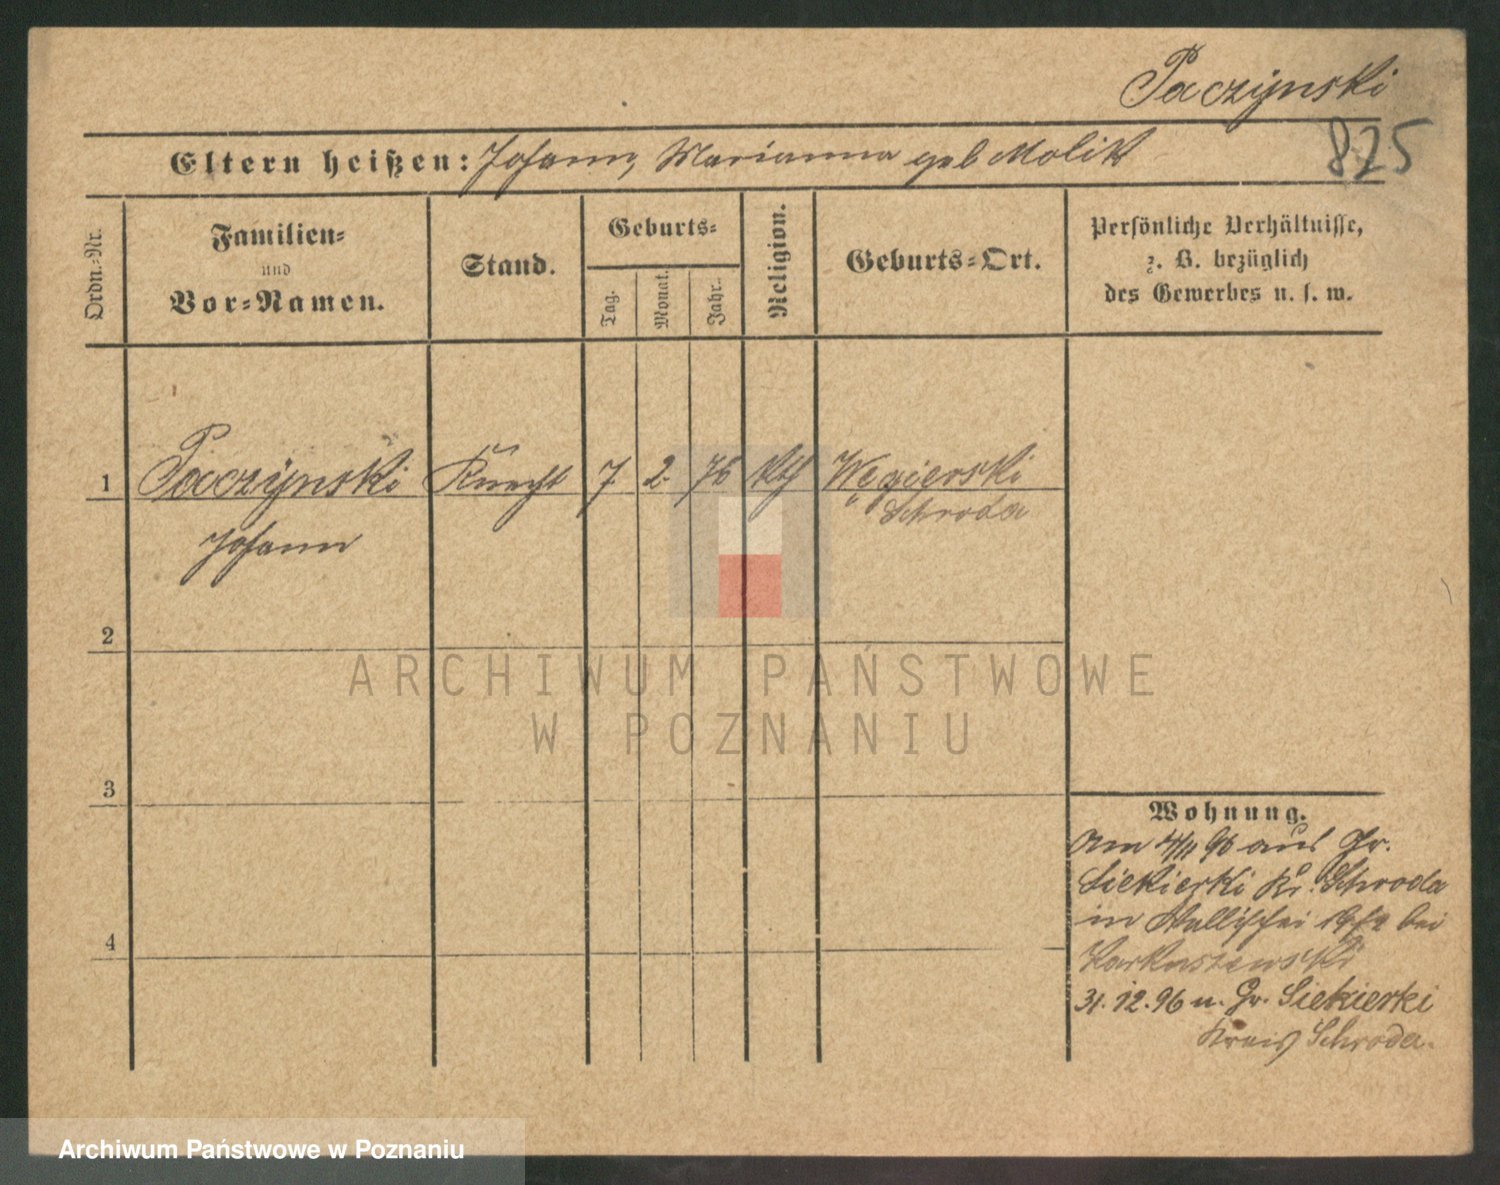 Paczynski
825
Eltern heißen: Johann, Marianna geb Molik
Ordn.-Nr.
Familien-
und
Vor-Namen.
Stand.
Geburts-
Tag.
Monat.
Jahr.
Religion.
Geburts-Ort.
Persönliche Verhältnisse,
z. B. bezüglich
des Gewerbes u. s. w.
1 Paczynski Knecht 7 2. 76 kth Węgierski
Schroda
Johann
2
3
4
Wohnung.
Am 4/11 96 aus Gr.
Siekierki Kr. Schroda
in Wallischei bei
31.12.96 n. Gr. Siekierki
Kreis Schroda.
ARCHIWUM PAŃSTWOWE
W POZNANIU
Archiwum Państwowe w Poznaniu